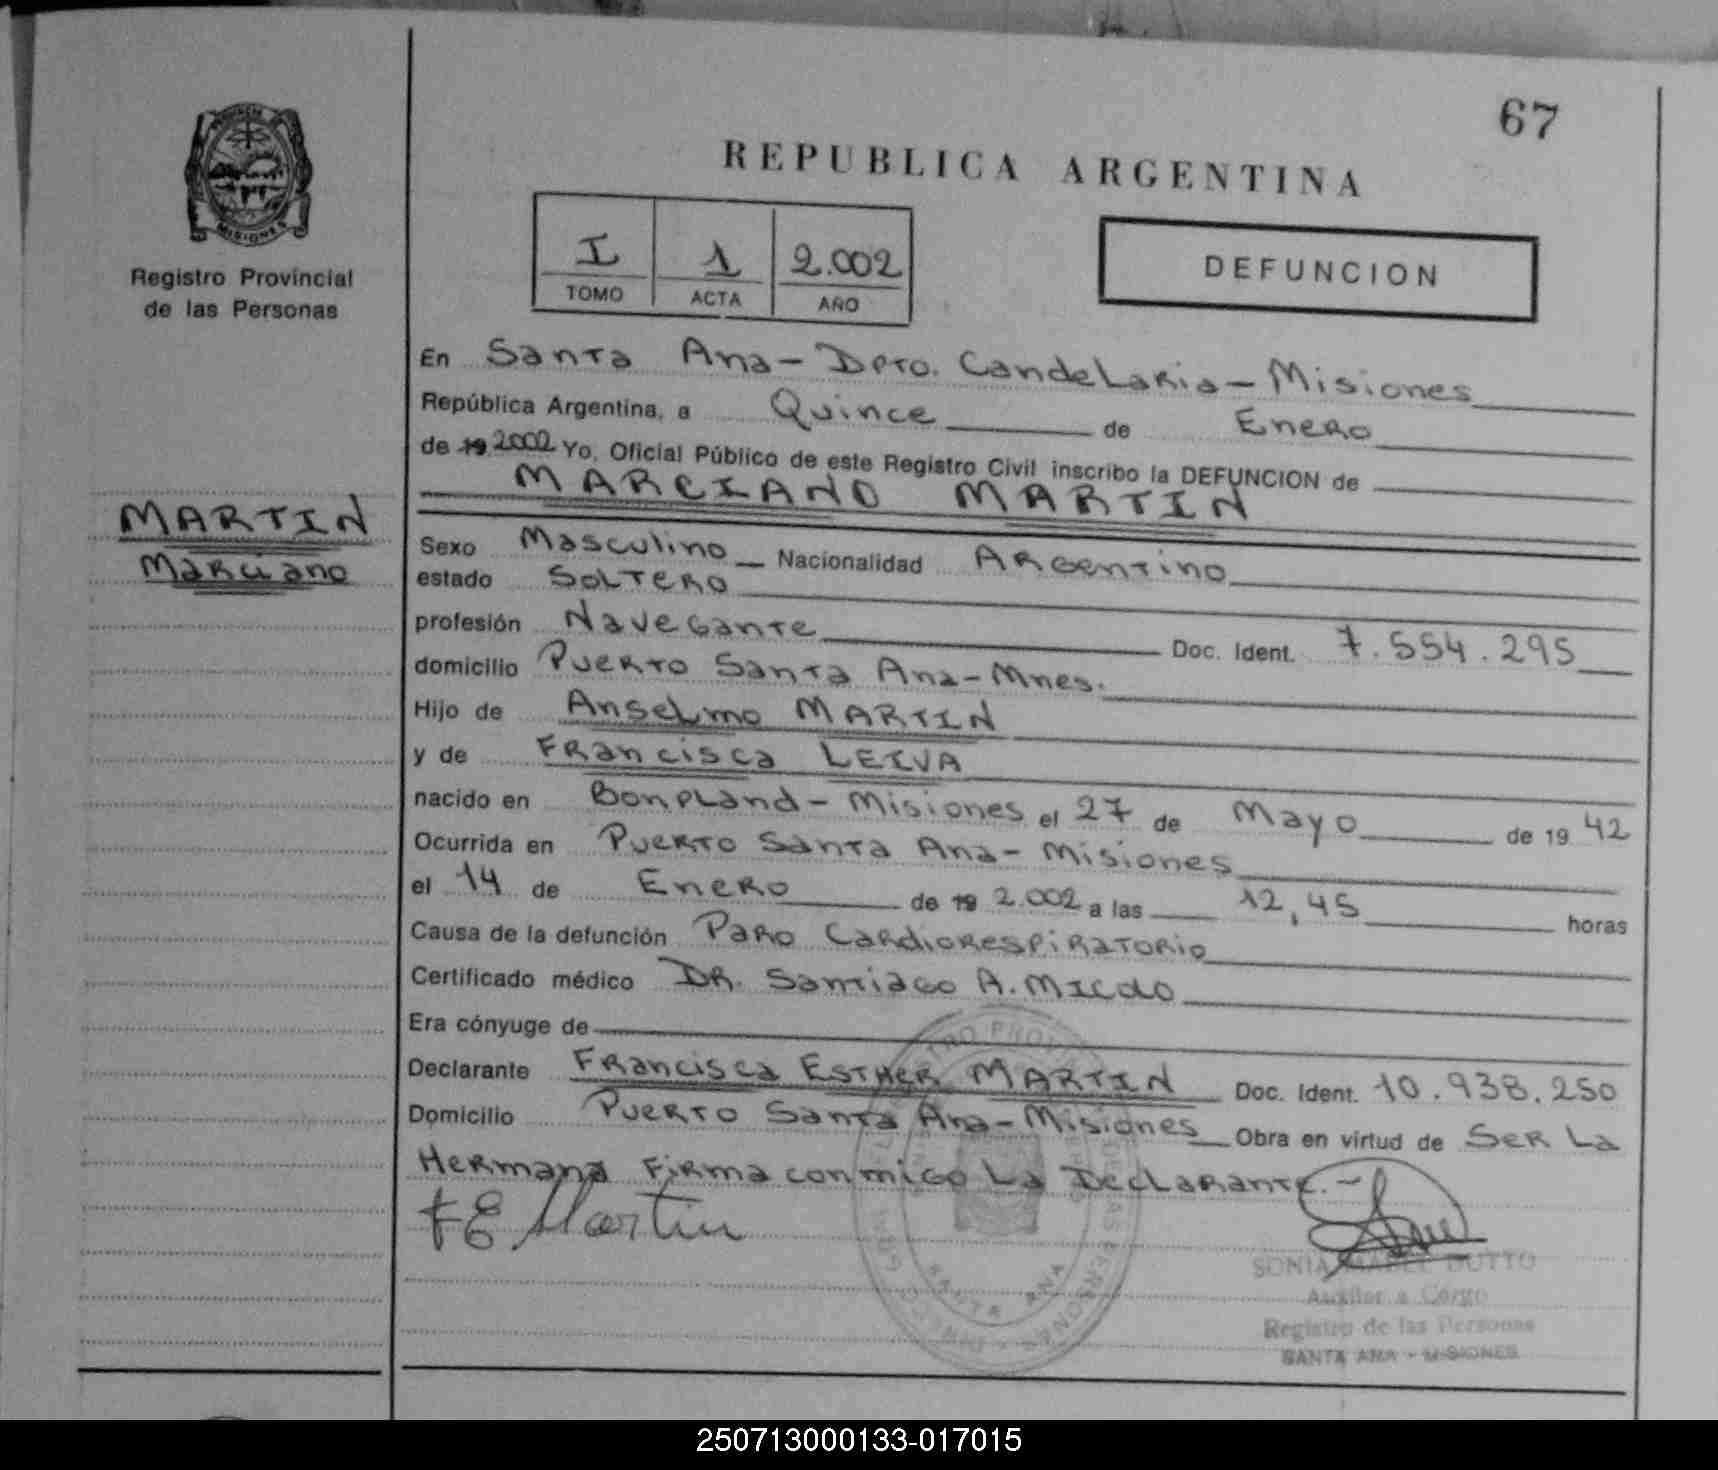 67
REPUBLICA ARGENTINA
PROVINCIA
MISIONES
Registro Provincial
de las Personas
I 1 2.002
TOMO ACTA AÑO
DEFUNCION
En Santa Ana - Dpto. Candelaria - Misiones
República Argentina, a Quince de Enero
de 19 2002 Yo, Oficial Público de este Registro Civil inscribo la DEFUNCION de
MARCIANO MARTIN
MARTIN
Marciano
Sexo Masculino Nacionalidad Argentino
estado Soltero
profesión Navegante Doc. Ident. 7.554.295
domicilio Puerto Santa Ana - Mnes.
Hijo de Anselmo MARTIN
y de Francisca LEIVA
nacido en Bonpland - Misiones el 27 de Mayo de 19 42
Ocurrida en Puerto Santa Ana - Misiones
el 14 de Enero de 19 2.002 a las 12,45 horas
Causa de la defunción Paro Cardiorespiratorio
Certificado médico DR. Santiago A.
Era cónyuge de
Declarante Francisca Esther MARTIN Doc. Ident. 10.938.250
Domicilio Puerto Santa Ana - Misiones Obra en virtud de Ser La
Hermana Firma conmigo La Declarante. -
F E Martin
SONIA MABEL DUTTO
Auxiliar a Cargo
Registro de las Personas
SANTA ANA - MISIONES
SANTA ANA
250713000133-017015